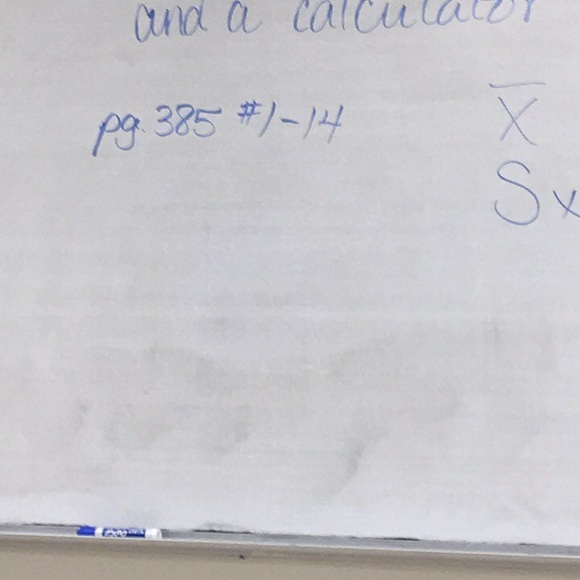 and a calculator
pg. 385 #1-14
X̅
Sx
EXPO